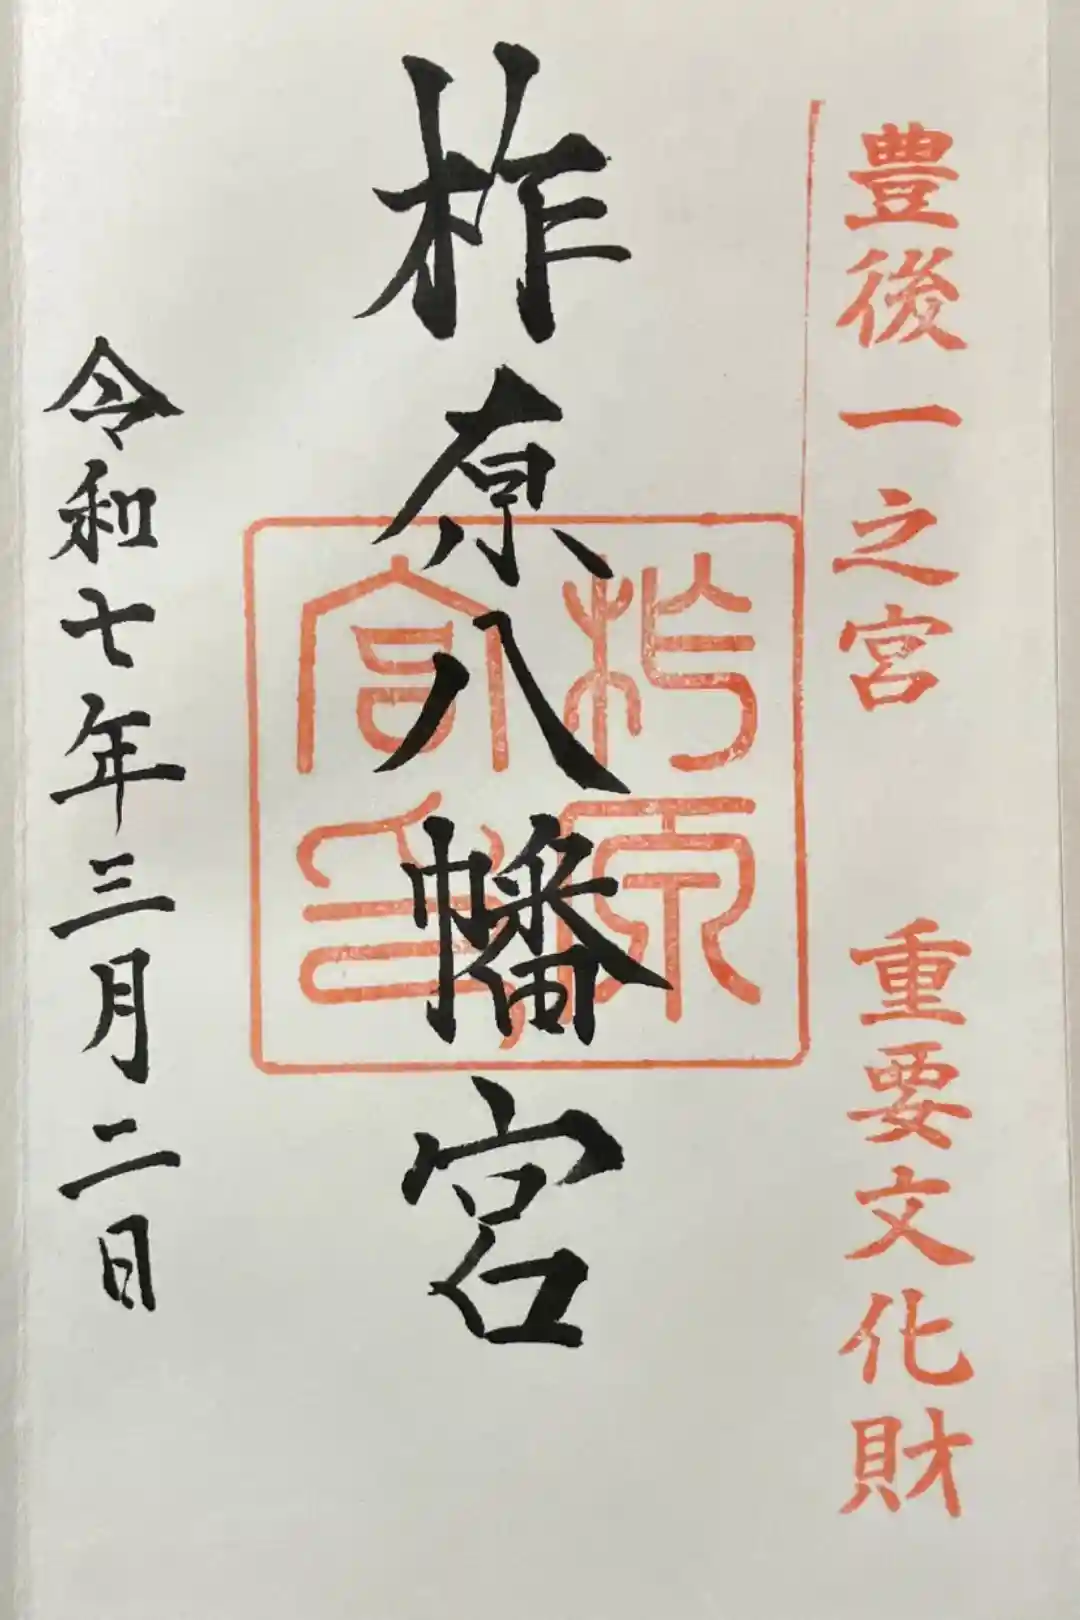 豊後一之宮 重要文化財
柞原八幡宮
柞原
宮印
令和七年三月二日